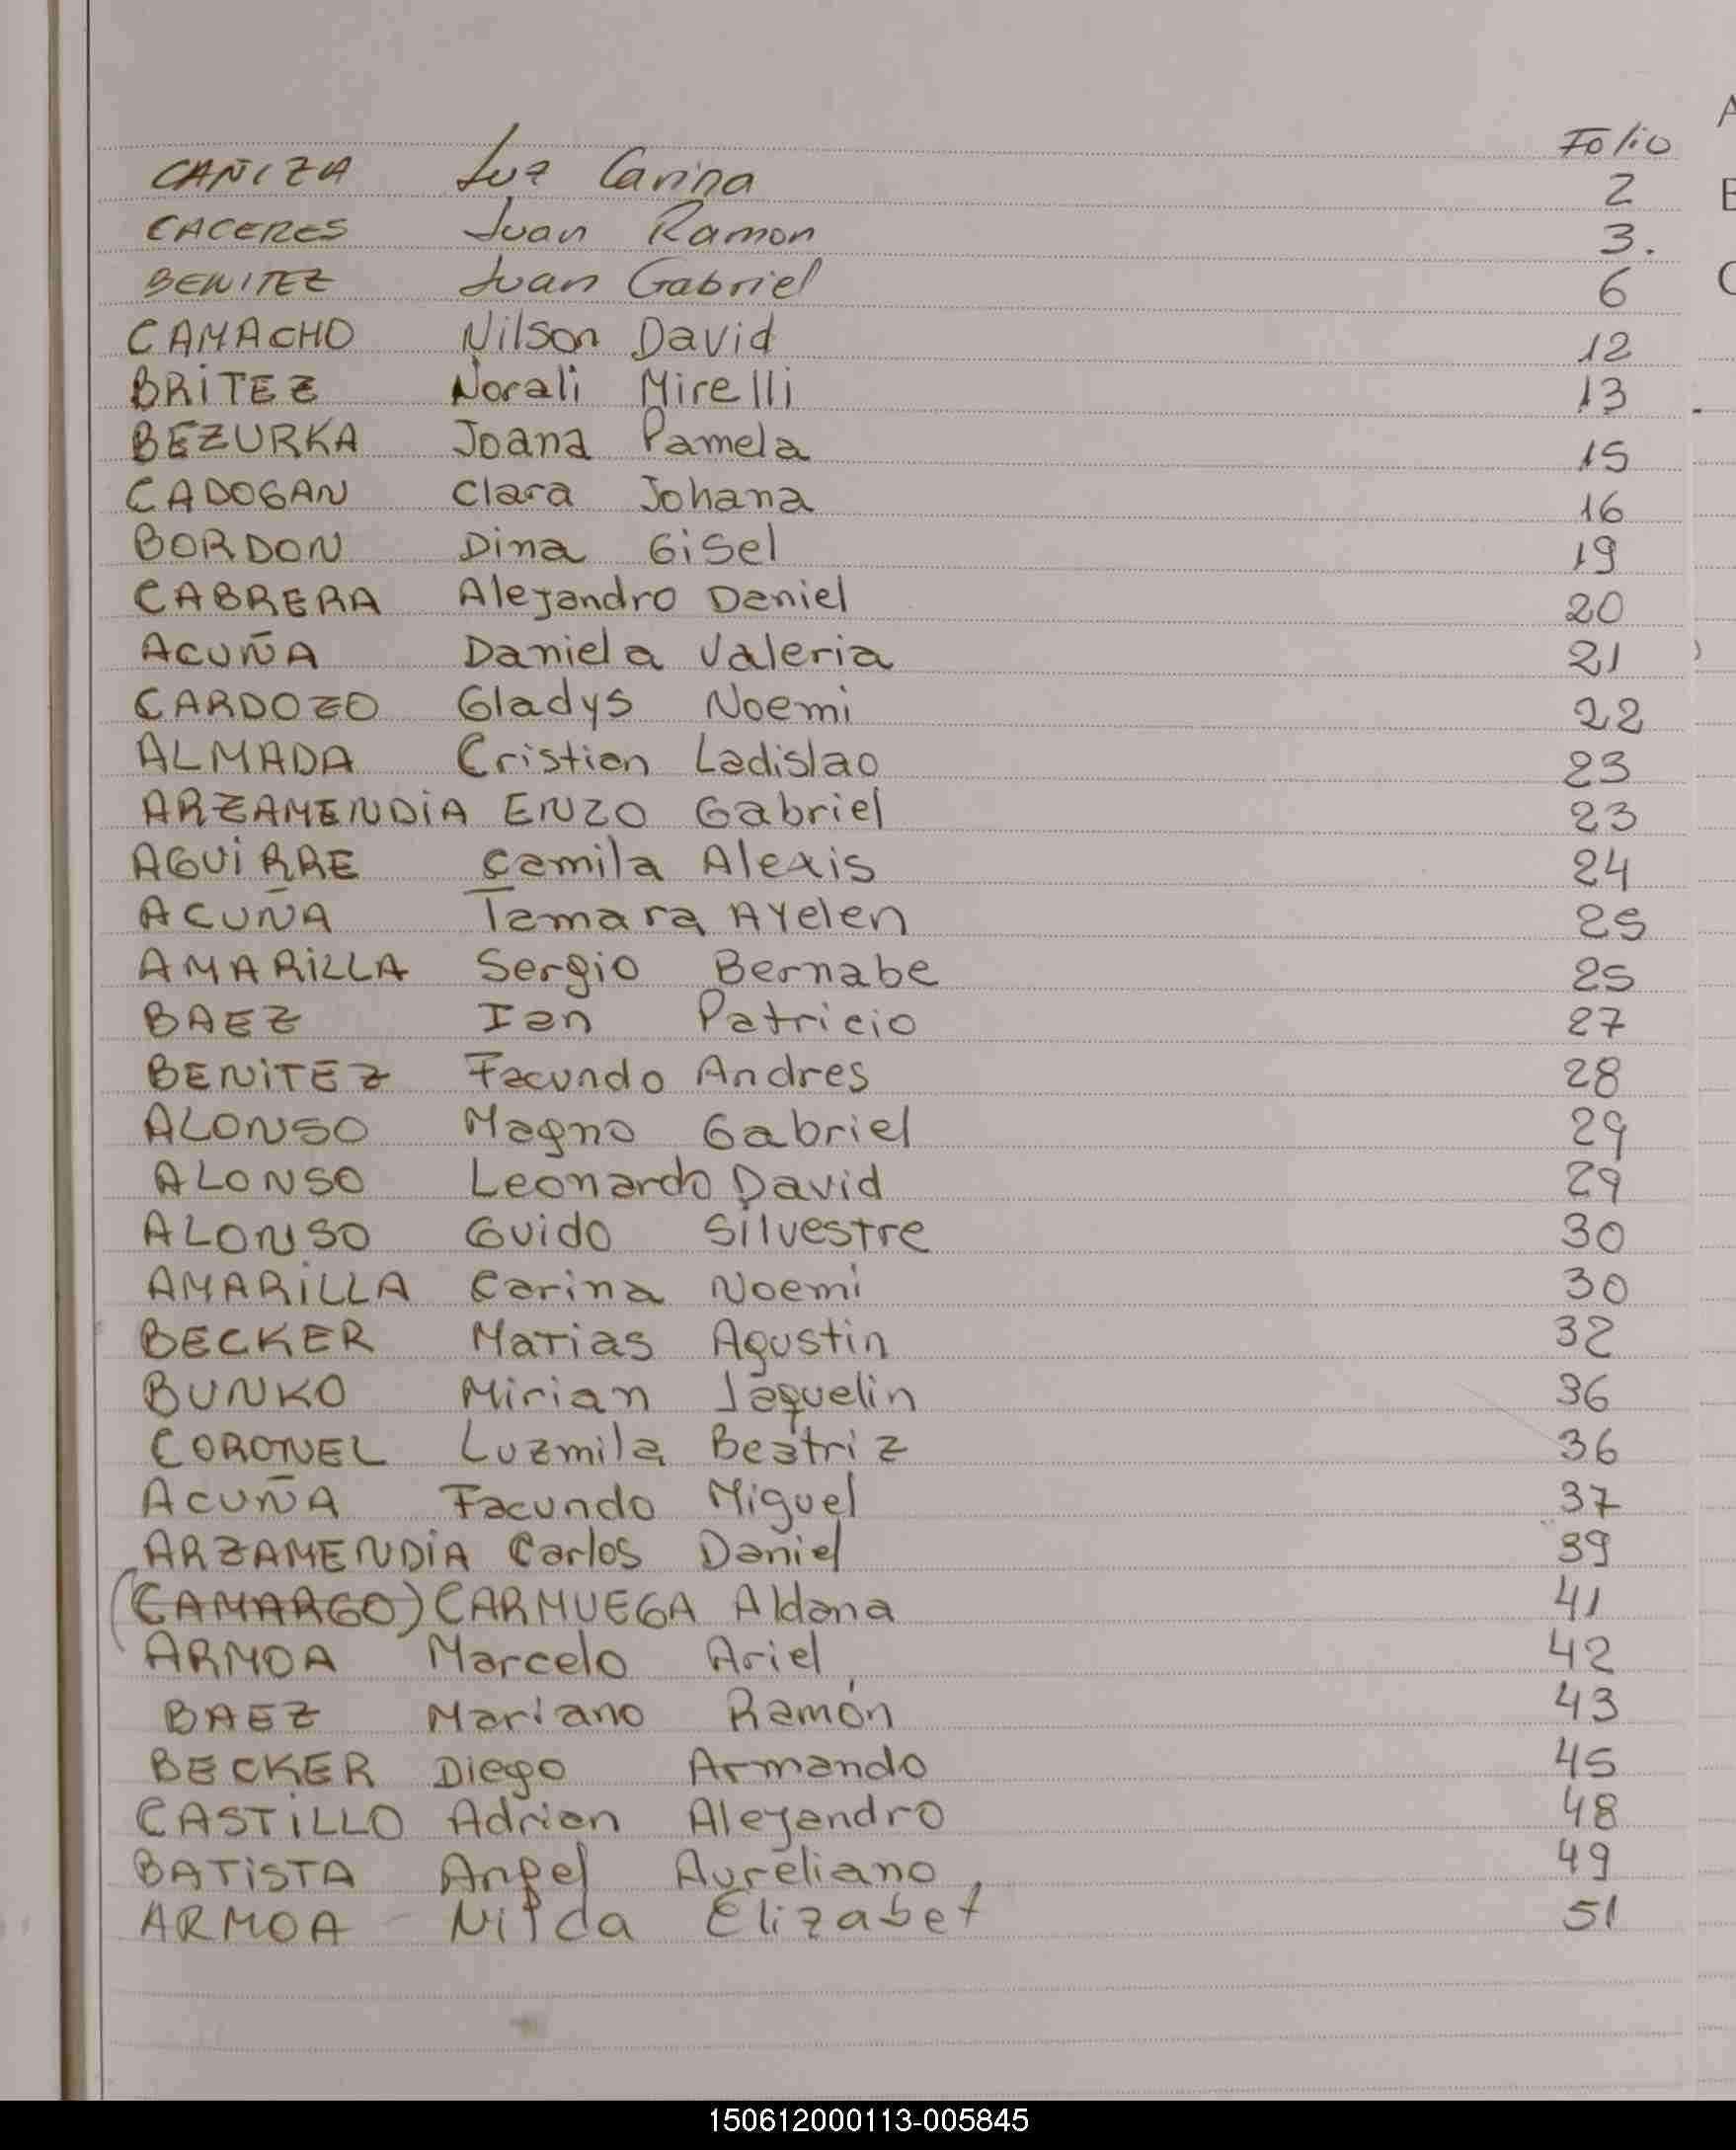 Folio
CAÑIZA Luz Carina 2
CACERES Juan Ramon 3.
BENITEZ Juan Gabriel 6
CAMACHO Nilson David 12
BRiTEZ Norali Mirelli 13
BEZURKA Joana Pamela 15
CADOGAN Clara Johana 16
BORDON Dina Gisel 19
CABRERA Alejandro Daniel 20
ACUÑA Daniela Valeria 21
CARDOZO Gladys Noemi 22
ALMADA Cristian Ladislao 23
ARZAMENDiA ENZO Gabriel 23
AGUiRRE Camila Alexis 24
ACUÑA Tamara AYelen 25
AMARiLLA Sergio Bernabe 25
BAEZ Ian Patricio 27
BENiTEZ Facundo Andres 28
ALONSO Magno Gabriel 29
ALONSO Leonardo David 29
ALONSO Guido Silvestre 30
AMARiLLA Carina Noemi 30
BECKER Matias Agustin 32
BUNKO Mirian Jaquelin 36
CORONEL Luzmila Beatriz 36
ACUÑA Facundo Miguel 37
ARZAMENDiA Carlos Daniel 39
(CAMARGO) CARMUEGA Aldana 41
ARMOA Marcelo Ariel 42
BAEZ Mariano Ramón 43
BECKER Diego Armando 45
CASTiLLO Adrian Alejandro 48
BATiSTA Angel Aureliano 49
ARMOA Nilda Elizabet 51
A
B
C
150612000113-005845